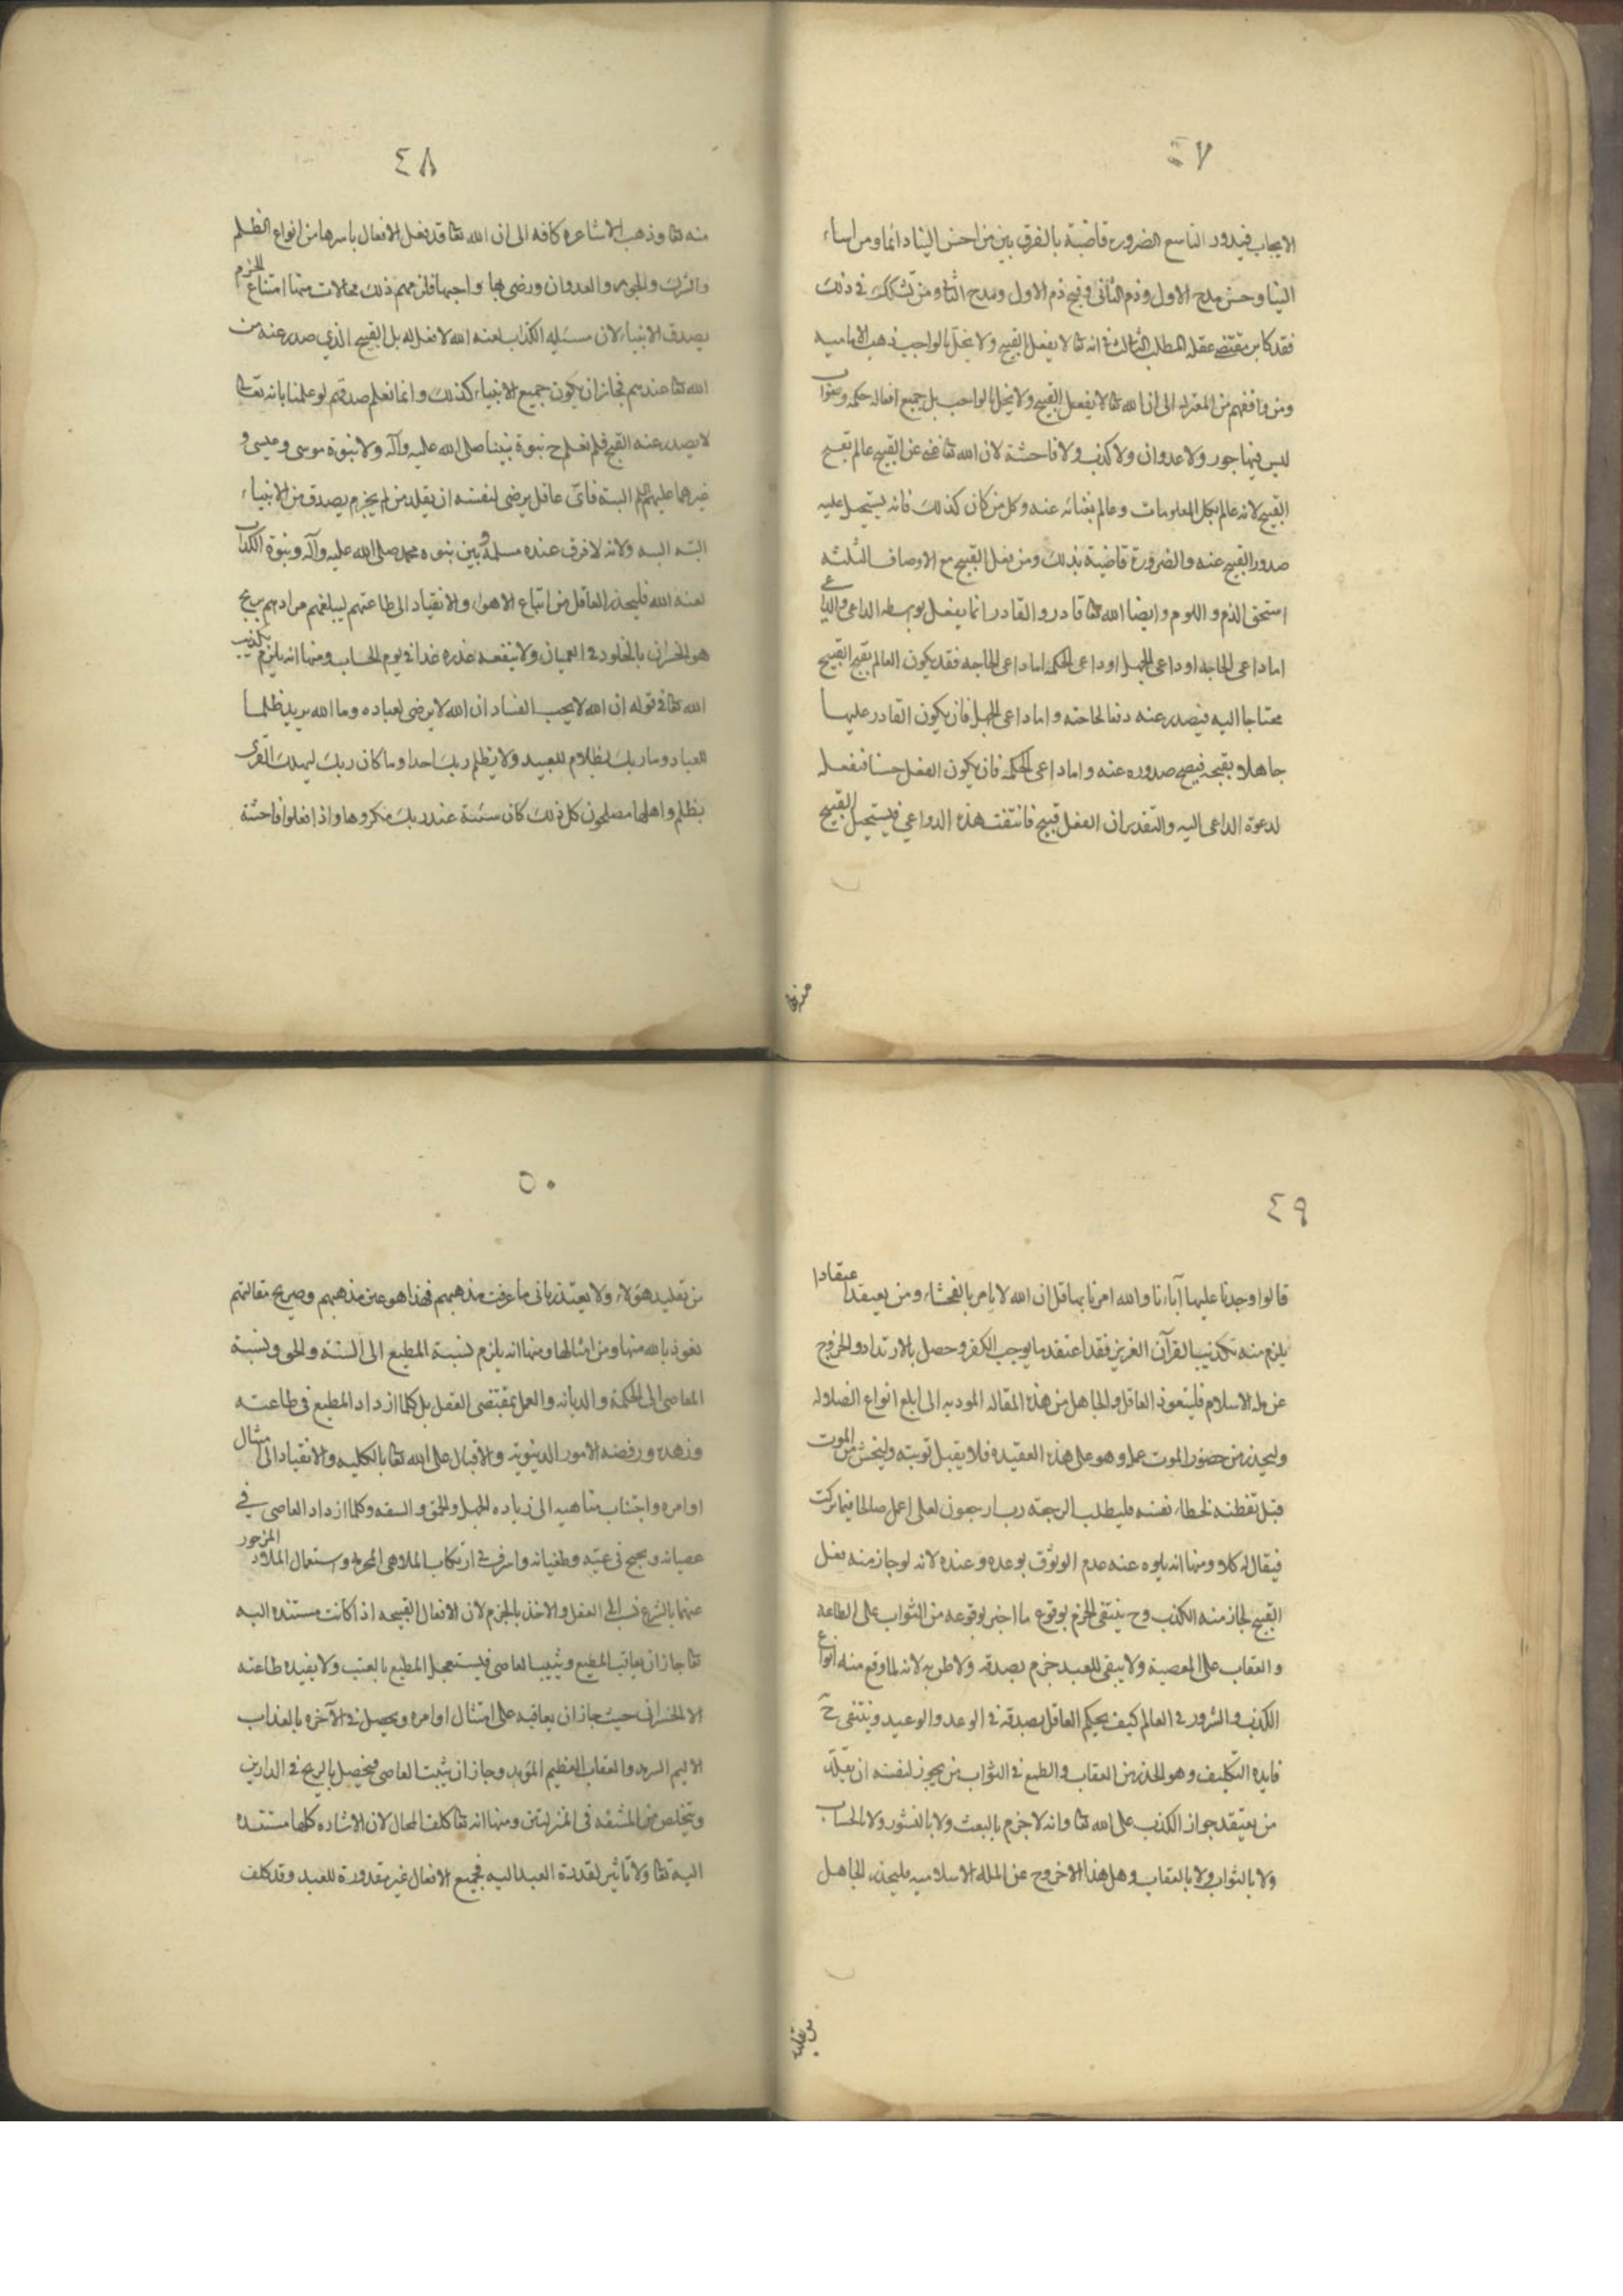 ٤٧
الايجاب فيدور التاسع الضرورة قاضية بالفرق بين من احسن الينا دائما ومن اساء
الينا وحسن مدح الاول وذم الثانى وقبح ذم الاول ومدح الثانى ومن تشكك فى ذلك
فقد كابر مقتضى عقله المطلب الثالث فى انه تعا لا يفعل القبيح ولا يخل بالواجب ذهب الاماميه
ومن وافقهم من المعتزله الى ان الله تعا لا يفعل القبيح ولا يخل بالواجب بل جميع افعاله حكمه وصواب
ليس فيها جور ولا عدوان ولا كذب ولا فاحشة لان الله تعا غنى عن القبيح عالم بقبح
القبيح لانه عالم بكل المعلومات وعالم بغنائه عنه وكل من كان كذلك فانه يستحيل عليه
صدور القبيح عنه والضرورة قاضية بذلك ومن يفعل القبيح مع الاوصاف الثلثه
استحق الذم و اللوم وايضا الله تعا قادر والقادر انما يفعل بوسطه الداعى والداعى
اما داعى الحاجه او داعى الجهل او داعى الحكمه اما داعى الحاجه فقد يكون العالم بقبح القبيح
محتاجا اليه فيصدر عنه دفعا لحاجته واما داعى الجهل فان يكون القادر عليها
جاهلا بقبحه فيصح صدوره عنه واما داعى الحكمه فان يكون الفعل حسنا فيفعله
لدعوة الداعى اليه والتقدير ان الفعل قبيح فانتفت هذه الدواعى فيستحيل القبيح
منه تعا
٤٨
منه تعا وذهب الاشاعره كافه الى ان الله تعا قد يفعل الافعال باسرها من انواع الظلم
والشرك والجور والعدوان ورضى بها واحبها فلزمهم ذلك محالات منها امتناع الجزم
بصدق الانبياء لان مسيلمه الكذاب لعنه الله لا فعل له بل القبيح الذي صدر عنه من
الله تعا عندهم فجاز ان يكون جميع الانبياء كذلك وانما نعلم صدقهم لو علمنا بانه تعالى
لا يصدر عنه القبيح فلم نعلم ح نبوة نبينا صلى الله عليه وآله ولا نبوة موسى وعيسى و
غيرهما عليهم السلم البتة فاىّ عاقل يرضى لنفسه ان يقلد من لم يجزم بصدق من الانبياء
البته البته ولانه لا فرق عنده بين نبوه محمد صلى الله عليه وآله ونبوة مسلمة الكذاب
لعنه الله فليحذر العاقل من اتباع الاهواء والانقياد الى طاعتهم ليبلغهم مرادهم يربح
هو الخسران بالخلود فى النيران ولا ينفعه عذره غدا فى يوم الحساب ومنها انه يلزم تكذيب
الله تعا فى قوله ان الله لا يحب الفساد ان الله لا يرضى لعباده وما الله يريد ظلما
للعباد وما ربك بظلام للعبيد ولا يظلم ربك احدا وما كان ربك ليهلك القرى
بظلم واهلها مصلحون كل ذلك كان سيئة عند ربك مكروها واذا فعلوا فاحشة
٤٩
قالوا وجدنا عليها آباءنا والله امرنا بها قل ان الله لا يامر بالفحشاء ومن يعتقد اعتقادا
يلزم منه تكذيب القرآن العزيز فقد اعتقد ما يوجب الكفر وحصل بالارتداد والخروج
عن مله الاسلام فليتعوذ العاقل والجاهل من هذه المقاله المؤديه الى ابلغ انواع الضلاله
وليحذر من حضور الموت عمله وهو على هذه العقيدة فلا يقبل توبته وليخش من الموت
قبل تفطنه لخطاء نفسه فليطلب الرجعة رب ارجعون لعلى اعمل صالحا فيما تركت
فيقال له كلا ومنها انه يلزم عنه عدم الوثوق بوعده وعيده لانه لو جاز منه فعل
القبيح لجاز منه الكذب وح ينتفى الجزم بوقوع ما اخبر بوقوعه من الثواب على الطاعة
والعقاب على المعصية ولا يبقى للعبد جزم بصدقه ولا ظن به لانه لما وقع منه انواع
الكذب والشرور فى العالم كيف يحكم العاقل بصدقه فى الوعد والوعيد وينتفى ح
فايده التكليف وهو الحذر من العقاب والطمع فى الثواب من يجوز لنفسه ان يقلد
من يعتقد جواز الكذب على الله تعا وانه لا جزم بالبعث ولا بالنشور ولا الحساب
ولا بالثواب ولا بالعقاب وهل هذا الا خروج عن المله الاسلاميه فليحذر الجاهل
من تقليد
٥٠
من تقليد هؤلاء ولا يعتذر بانى ما عرفت مذهبهم فهذا هو عين مذهبهم وصريح مقالتهم
نعوذ بالله منها ومن امثالها ومنها انه يلزم نسبة المطيع الى السفه والحمق ونسبة
العاصى الى الحكمة والديانه والعمل بمقتضى العقل بل كلما ازداد المطيع فى طاعته
وزهده ورفضه الامور الدينوية والاقبال على الله تعا بالكليه والانقياد الى امتثال
اوامره واجتناب مناهيه الى زياده الجهل والحمق والسفه وكلما ازداد العاصى فى
عصيانه و فى غيه وطغيانه واسرف فى ارتكاب الملاهى المحرمه واستعمال الملاذ المزجور
عنها بالشرع نسب الى العقل والاخذ بالجزم لان الافعال القبيحه اذا كانت مستنده اليه
تعا جاز ان يعاقب المطيع ويثيب العاصى فيستعجل المطيع بالتعب ولا يفيده طاعته
الا الخسران حيث جاز ان يعاقبه على امتثال اوامره ويحصل فى الآخره بالعذاب
الاليم السرمد والعقاب العظيم المؤبد وجاز ان يثيب العاصى فيحصل بالربح فى الدارين
ويتخلص من المشقه فى المنزلتين ومنها انه تعا كلف المحال لان الاشاره كلها مستنده
اليه تعا ولا تأثير لقدرة العبد اليه فجميع الافعال غير مقدورة للعبد وقد كلف